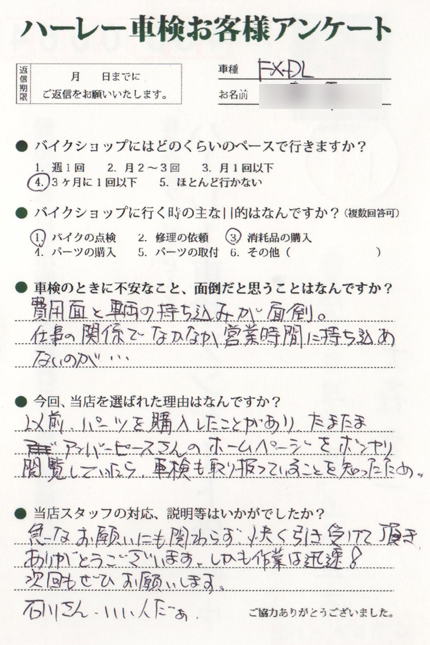 ハーレー車検お客様アンケート
返信期限
月　日までに
ご返信をお願いいたします。
車種 FXDL
お名前
● バイクショップにはどのくらいのペースで行きますか？
1. 週1回　2. 月2～3回　3. 月1回以下
4. 3ヶ月に1回以下　5. ほとんど行かない
● バイクショップに行く時の主な目的はなんですか？（複数回答可）
1. バイクの点検　2. 修理の依頼　3. 消耗品の購入
4. パーツの購入　5. パーツの取付　6. その他（　　　）
● 車検のときに不安なこと、面倒だと思うことはなんですか？
費用面と車両の持ち込みが面倒。
仕事の関係でなかなか営業時間に持ち込め
ないのが…
● 今回、当店を選ばれた理由はなんですか？
以前、パーツを購入したことがあり、たまたま
アンバーピースさんのホームページをボンヤリ
閲覧していたら、車検も取り扱っていることを知ったため。
● 当店スタッフの対応、説明等はいかがでしたか？
急なお願いにも関わらず、快く引き受けて頂き
ありがとうございます。しかも作業は迅速！
次回もぜひお願いします。
石川さん、いい人だぁ。
ご協力ありがとうございました。